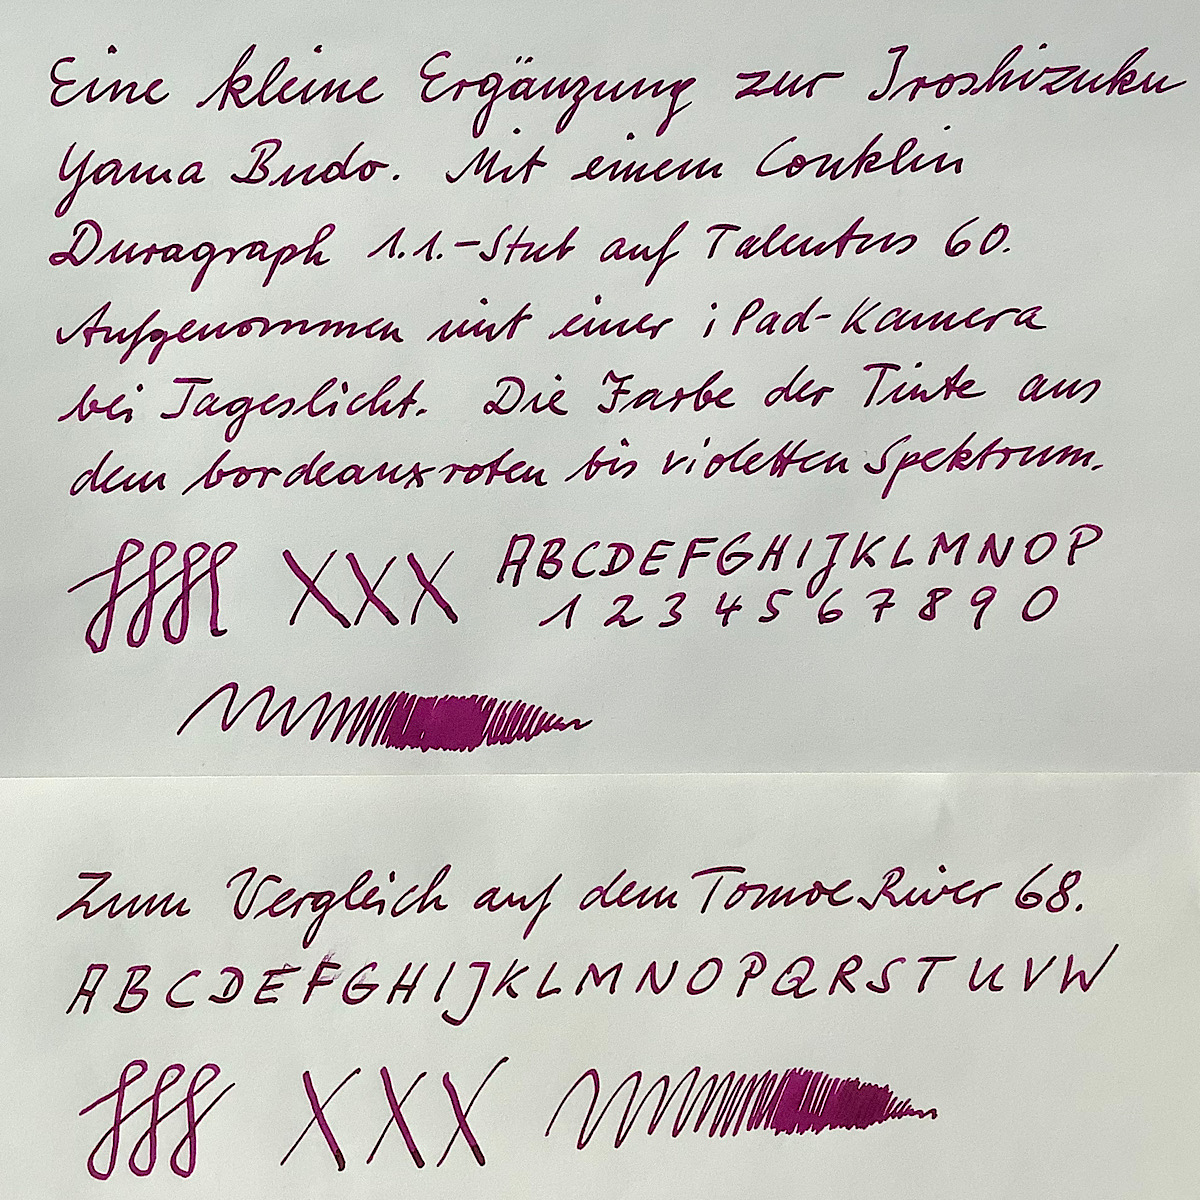 Eine kleine Ergänzung zur Iroshizuku
Yama Budo. Mit einem Conklin
Duragraph 1.1.-Stub auf Talentus 60.
Aufgenommen mit einer iPad-Kamera
bei Tageslicht. Die Farbe der Tinte aus
dem bordeauxroten bis violetten Spektrum.
XXX ABCDEFGHIJKLMNOP
1234567890
Zum Vergleich auf dem Tomoe River 68.
ABCDEFGHIJKLMNOPQRSTUVW
XXX